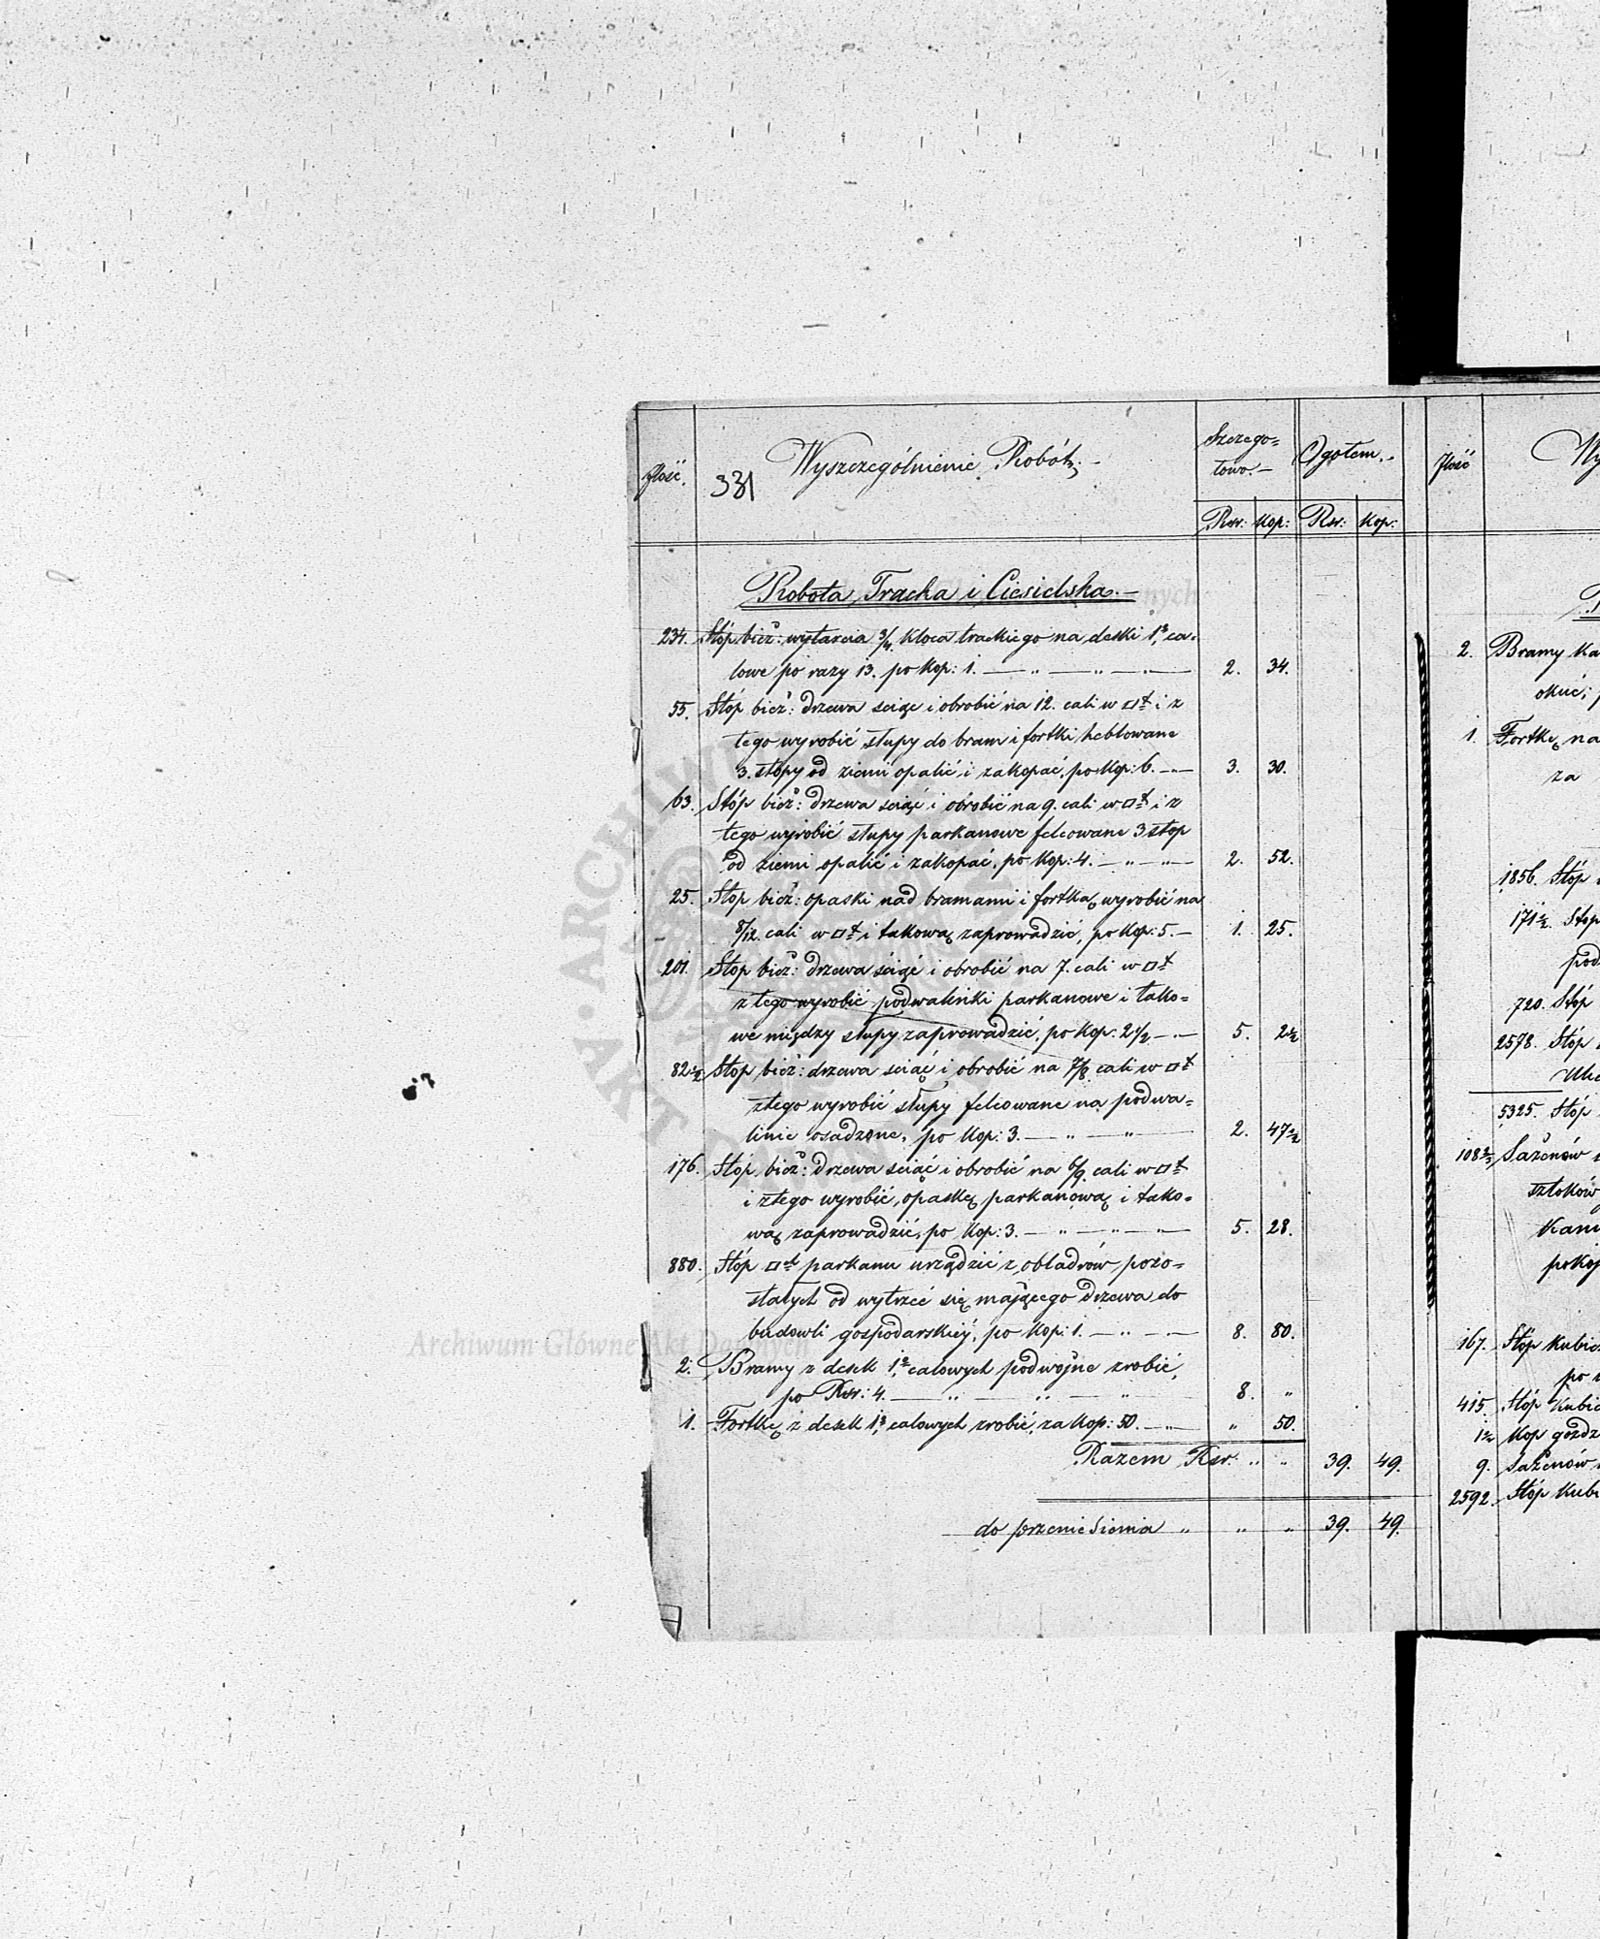 Ilość. 331 Wyszczególnienie Robót. Szczegó=
towo.— Ogołem.—
Rsr: Kop: Rsr: Kop:
Robota Tracka i Ciesielska.—
234. Stóp bież: wytarcia 3/4 kloca trackiego na deski ca=
lowe po razy 13. po Kop: 1. — „ — „ — 2. 34.
55. Stóp bież: drzewa ściąć i obrobić na 12. cali w □t i z
tego wyrobić słupy do bram i fortki heblowane
3. stopy od ziemi opalić i zakopać, po Kop: 6. — 3. 30.
63. Stóp bież: drzewa ściąć i obrobić na 9. cali w □t i z
tego wyrobić słupy parkanowe felcowane 3 stop
od ziemi opalić i zakopać, po Kop: 4. — „ — „ — 2. 52.
25. Stóp bież: opaski nad bramami i fortką wyrobić na
8/12. cali w □t i takową zaprowadzić, po Kop: 5. — 1. 25.
201. Stóp bież: drzewa ściąć i obrobić na 7. cali w □t
z tego wyrobić podwalinki parkanowe i tako=
we między słupy zaprowadzić, po Kop: 2 1/2 — 5. 2 1/2
82 1/2 Stóp bież: drzewa ściąć i obrobić na 7/8. cali w □t
z tego wyrobić słupy felcowane na podwa=
linie osadzone, po Kop: 3. — „ — „ — 2. 47 1/2
176. Stóp bież: drzewa ściąć i obrobić na 6/9. cali w □t
i z tego wyrobić opaskę parkanową i tako=
wą zaprowadzić, po Kop: 3. — „ — „ — „ — 5. 28.
880. Stóp □t parkanu urządzić z obladrów pozo=
stałych od wytrzeć się mającego drzewa do
budowli gospodarskiéj, po Kop: 1. — „ — 8. 80.
2. Bramy z desek calowych podwójne zrobić,
po Rsr: 4. — „ — „ — „ — 8. „
1. Fortkę z desek calowych zrobić, za Kop: 50. — „ — „ 50.
Razem Rsr: „ „ 39. 49.
do przeniesienia „ „ „ 39. 49.
Ilość Wy
2. Bramy ka
okuć; p
1. Fortkę na
za
1856. Stóp
171 1/2. Stóp
pod
720. Stóp
2578. Stóp
5325. Stóp
Sażenów
sztoków
Kam
pokoj
167. Stóp Kubicz
po
415. Stóp Kubic
Kop góźdz
9. Sażenów
2592. Stóp Kubi
Archiwum Główne Akt Dawnych